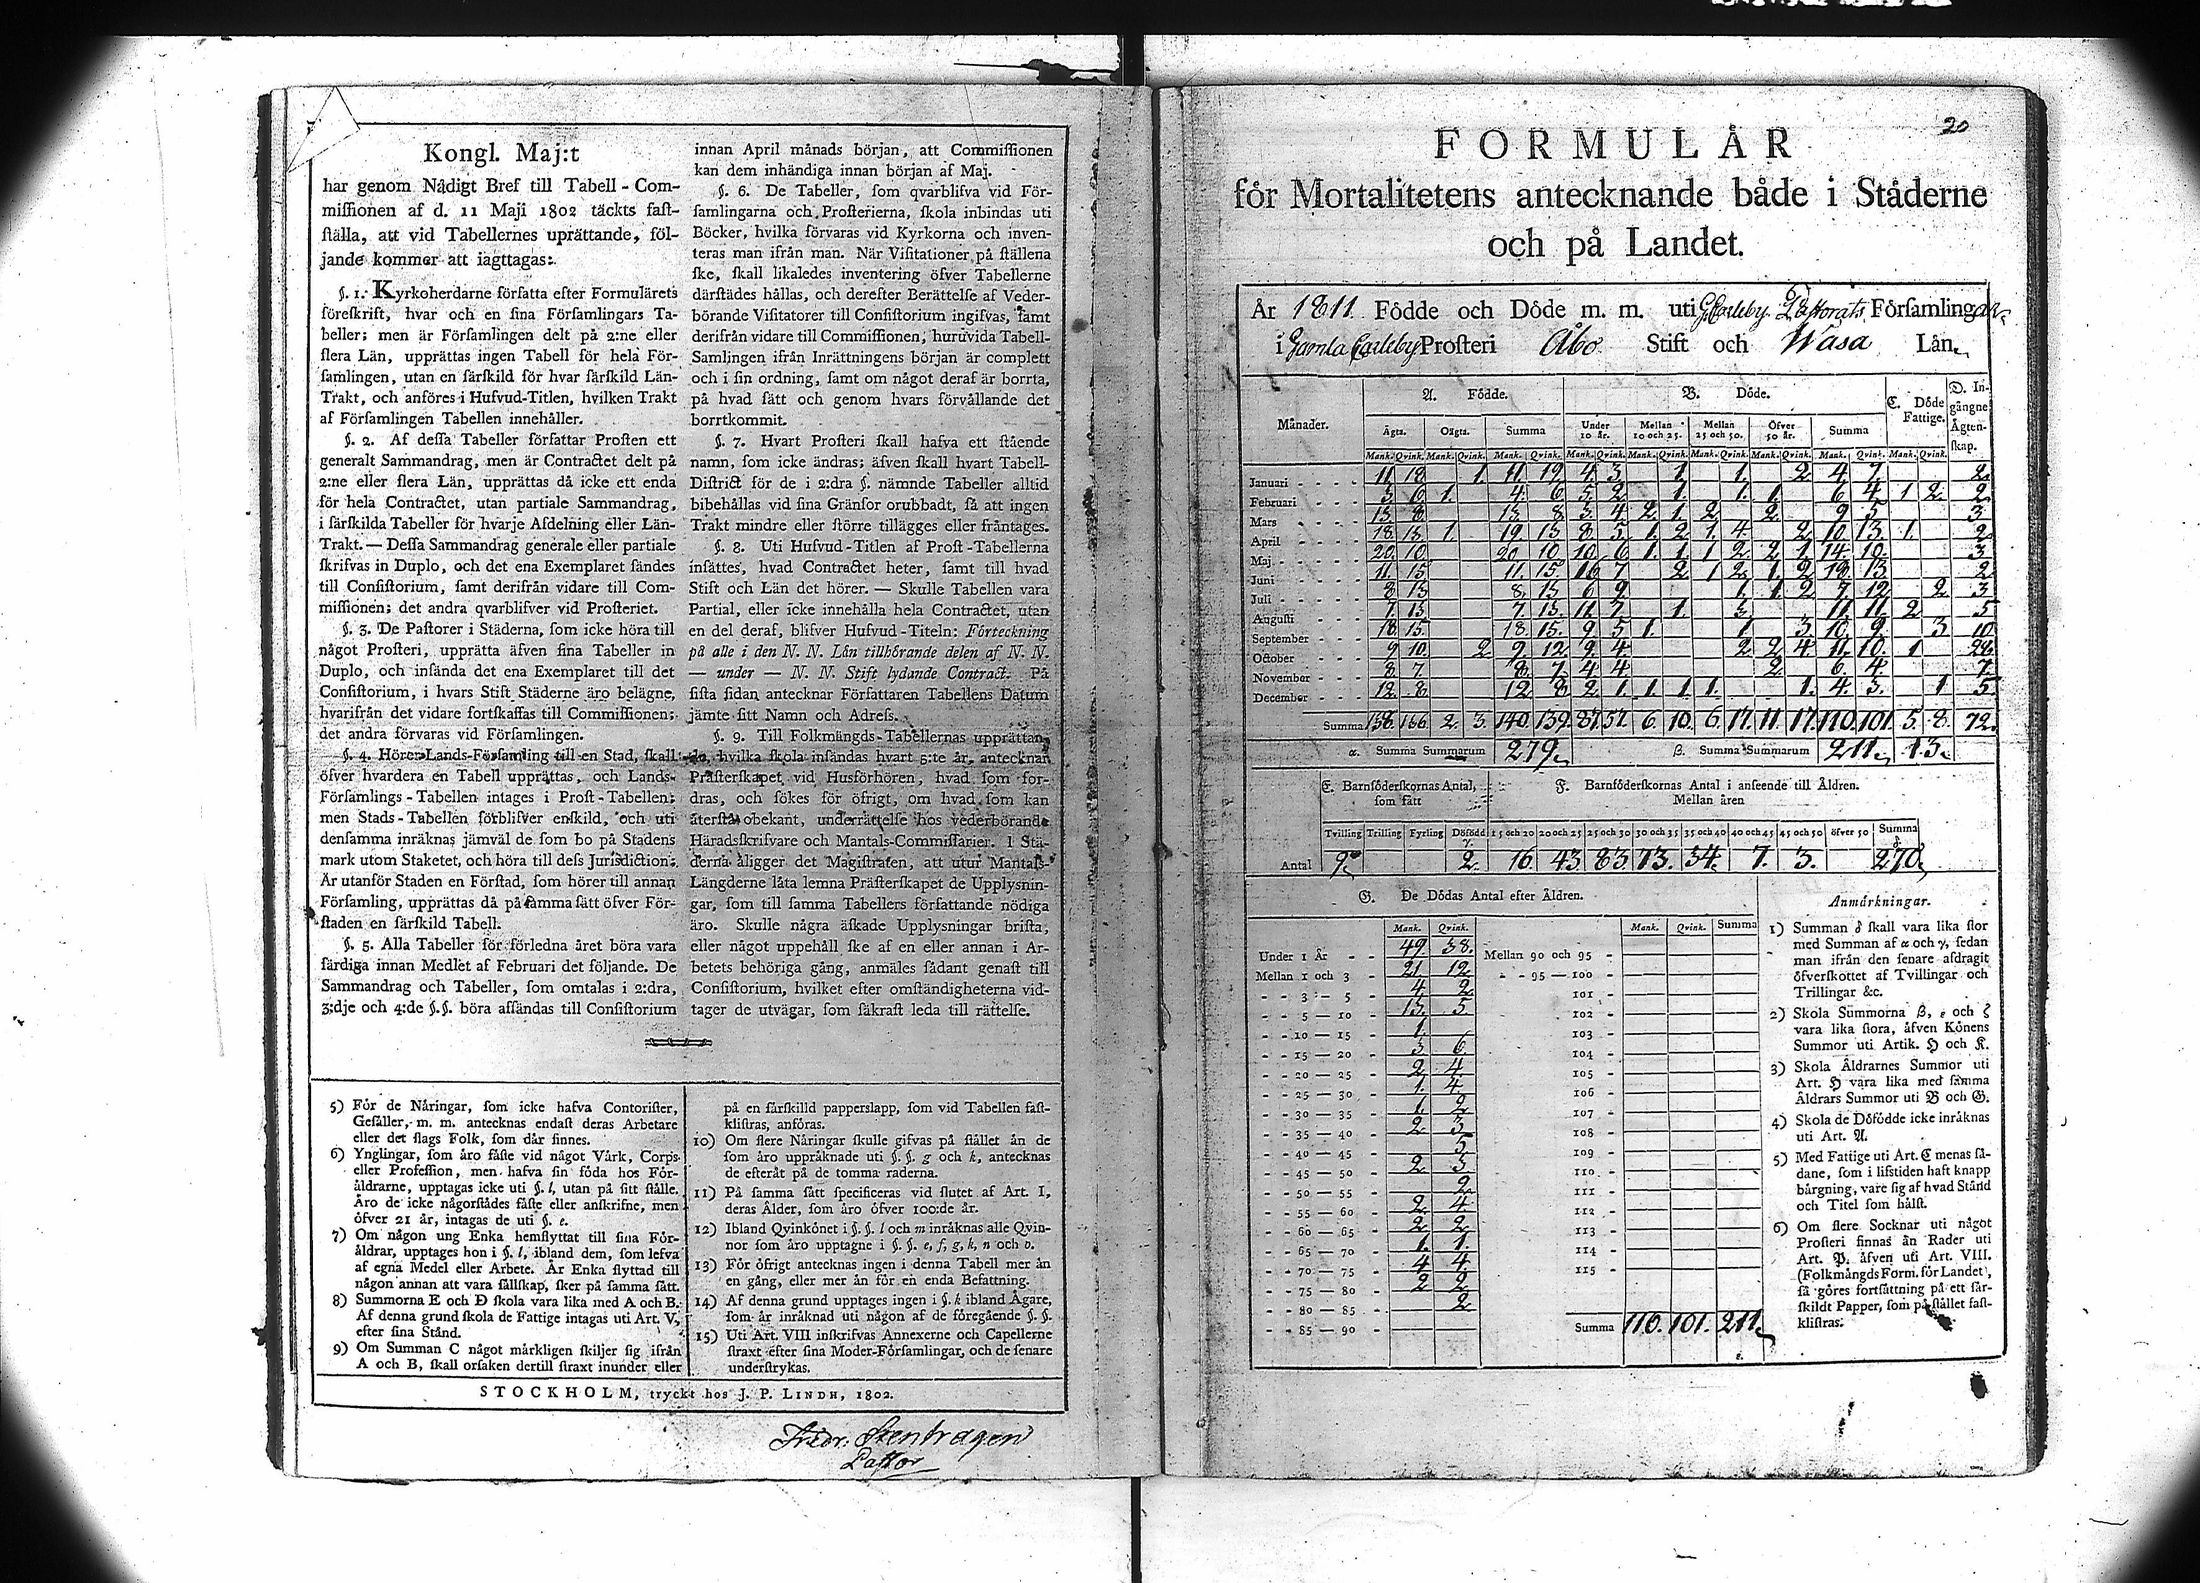 Kongl. Maj:t
har genom Nådigt Bref till Tabell-Com-
miſſionen af d. 11 Maji 1802 täckts faſt-
ſtälla, att vid Tabellernes uprättande, föl-
jande kommer att iagttagas:
§. 1. Kyrkoherdarne författa efter Formulärets
föreſkrift, hvar och en ſina Förſamlingars Ta-
beller; men är Förſamlingen delt på 2:ne eller
flera Län, upprättas ingen Tabell för hela För-
ſamlingen, utan en ſärſkild för hvar ſärſkild Län-
Trakt, och anföres i Hufvud-Titlen, hvilken Trakt
af Förſamlingen Tabellen innehåller.
§. 2. Af deſſa Tabeller författar Proſten ett
generalt Sammandrag, men är Contractet delt på
2:ne eller flera Län, upprättas då icke ett enda
för hela Contractet, utan partiale Sammandrag,
i ſärſkilda Tabeller för hvarje Afdelning eller Län-
Trakt. — Deſſa Sammandrag generale eller partiale
ſkrifvas in Duplo, och det ena Exemplaret ſändes
till Conſiſtorium, ſamt derifrån vidare till Com-
miſſionen; det andra qvarblifver vid Proſteriet.
§. 3. De Paſtorer i Städerna, ſom icke höra till
något Proſteri, upprätta äfven ſina Tabeller in
Duplo, och inſända det ena Exemplaret till det
Conſiſtorium, i hvars Stift Städerne äro belägne,
hvarifrån det vidare fortſkaffas till Commiſſionen;
det andra förvaras vid Förſamlingen.
§. 4. Hörer Lands-Förſamling till en Stad, ſkall
öfver hvardera en Tabell upprättas, och Lands-
Förſamlings-Tabellen intages i Proſt-Tabellen;
men Stads-Tabellen förblifver enſkild, och uti
denſamma inräknas jämväl de ſom bo på Stadens
mark utom Staketet, och höra till deſs Jurisdiction.
Är utanför Staden en Förſtad, ſom hörer till annan
Förſamling, upprättas då på ſamma ſätt öfver För-
ſtaden en ſärſkild Tabell.
§. 5. Alla Tabeller för förledna året böra vara
färdiga innan Medlet af Februari det följande. De
Sammandrag och Tabeller, ſom omtalas i 2:dra,
3:dje och 4:de §.§. böra afſändas till Conſiſtorium
innan April månads början, att Commiſſionen
kan dem inhändiga innan början af Maj.
§. 6. De Tabeller, ſom qvarblifva vid För-
ſamlingarna och Proſterierna, ſkola inbindas uti
Böcker, hvilka förvaras vid Kyrkorna och inven-
teras man ifrån man. När Viſitationer på ſtällena
ſke, ſkall likaledes inventering öfver Tabellerne
därſtädes hållas, och derefter Berättelſe af Veder-
börande Viſitatorer till Conſiſtorium ingifvas, ſamt
derifrån vidare till Commiſſionen, huruvida Tabell-
Samlingen ifrån Inrättningens början är complett
och i ſin ordning, ſamt om något deraf är borrta,
på hvad ſätt och genom hvars förvållande det
borrtkommit.
§. 7. Hvart Proſteri ſkall hafva ett ſtående
namn, ſom icke ändras; äfven ſkall hvart Tabell-
Diſtrict för de i 2:dra §. nämnde Tabeller alltid
bibehållas vid ſina Gränſor orubbadt, ſå att ingen
Trakt mindre eller ſtörre tillägges eller fråntages.
§. 8. Uti Hufvud-Titlen af Proſt-Tabellerna
inſättes, hvad Contractet heter, ſamt till hvad
Stift och Län det hörer. — Skulle Tabellen vara
Partial, eller icke innehålla hela Contractet, utan
en del deraf, blifver Hufvud-Titeln: Förteckning
på alle i den N. N. Län tillhörande delen af N. N.
— under — N. N. Stift lydande Contract. På
ſiſta ſidan antecknar Författaren Tabellens Datum
jämte ſitt Namn och Adreſs.
§. 9. Till Folkmängds-Tabellernas upprättan-
de, hvilka ſkola inſändas hvart 5:te år, antecknar
Präſterſkapet vid Husförhören, hvad ſom for-
dras, och ſökes för öfrigt, om hvad ſom kan
återſtå obekant, underrättelſe hos vederbörande
Häradsſkrifvare och Mantals-Commiſſarier. I Stä-
derna åligger det Magiſtraten, att utur Mantals-
Längderne låta lemna Präſterſkapet de Upplysnin-
gar, ſom till ſamma Tabellers författande nödiga
äro. Skulle några äſkade Upplysningar briſta,
eller något uppehåll ſke af en eller annan i Ar-
betets behöriga gång, anmäles ſådant genaſt till
Conſiſtorium, hvilket efter omſtändigheterna vid-
tager de utvägar, ſom ſäkraſt leda till rättelſe.
5) För de Näringar, ſom icke hafva Contoriſter,
Geſäller, m. m. antecknas endaſt deras Arbetare
eller det ſlags Folk, ſom där finnes.
6) Ynglingar, ſom äro fäſte vid något Värk, Corps
eller Profeſſion, men hafva ſin föda hos För-
äldrarne, upptagas icke uti §. l, utan på ſitt ſtälle.
Äro de icke någorſtädes fäſte eller anſkrifne, men
öfver 21 år, intagas de uti §. e.
7) Om någon ung Enka hemflyttat till ſina För-
äldrar, upptages hon i §. l, ibland dem, ſom lefva
af egna Medel eller Arbete. Är Enka flyttad till
någon annan att vara ſällſkap, ſker på ſamma ſätt.
8) Summorna E och D ſkola vara lika med A och B.
Af denna grund ſkola de Fattige intagas uti Art. V,
efter ſina Stånd.
9) Om Summan C något märkligen ſkiljer ſig ifrån
A och B, ſkall orſaken dertill ſtraxt inunder eller
på en ſärſkilld papperslapp, ſom vid Tabellen faſt-
kliſtras, anföras.
10) Om flere Näringar ſkulle gifvas på ſtället än de
ſom äro uppräknade uti §. §. g och k, antecknas
de efteråt på de tomma raderna.
11) På ſamma ſätt ſpecificeras vid ſlutet af Art. I,
deras Ålder, ſom äro öfver 100:de år.
12) Ibland Qvinkönet i §. §. l och m inräknas alle Qvin-
nor ſom äro upptagne i §. §. e, f, g, k, n och o.
13) För öfrigt antecknas ingen i denna Tabell mer än
en gång, eller mer än för en enda Befattning.
14) Af denna grund upptages ingen i §. k ibland Ägare,
ſom är inräknad uti någon af de föregående §. §.
15) Uti Art. VIII inſkrifvas Annexerne och Capellerne
ſtraxt efter ſina Moder-Förſamlingar, och de ſenare
underſtrykas.
STOCKHOLM, tryckt hos J. P. LINDH, 1802.
Fridr. Stenhagen
Paſtor
20
FORMULÅR
för Mortalitetens antecknande både i Ståderne
och på Landet.
År 1811. Födde och Döde m. m. uti G. Carleby Paſtorats Förſamlingar
i Gamla Carleby Proſteri Åbo Stift och Wasa Län.
Månader. A. Födde. B. Döde. C. Döde Fattige. D. Ingångne Ägtenſkap.
Ägta. Oägta. Summa Under 10 år. Mellan 10 och 25. Mellan 25 och 50. Öfver 50 år. Summa
Mank. Qvink. Mank. Qvink. Mank. Qvink. Mank. Qvink. Mank. Qvink. Mank. Qvink. Mank. Qvink. Mank. Qvink. Mank. Qvink.
Januari 11 18 1. 11. 19 4. 3 1 1. 2 4. 7 2
Februari 3 6 1. 4. 6 5. 2 1. 1. 1. 6 4 1 2 2
Mars 13 8 13. 8 3. 4 2. 1. 2 2. 9 5 3
April 18 13 1. 19 13 8 5 1. 2 1. 4 2 10. 13 1. 2
Maj 20 10 20 10 10 6 1. 1. 1 2 2 1 14. 10 3
Juni 11. 15 11. 15 16 7 2 1 2 1. 2 13 2
Juli 8 13 8. 13 6 9 1. 1 2 7 12 2 3
Auguſti 7. 13 7. 13 11 7 1. 3 11. 11 2 5
September 18. 15 18. 15. 9 5 1. 1 3 10. 9. 3 10
October 9 10. 2 9. 12 9 4 2 2 4 11. 10. 1
November 8 7 8. 7 4 4 2 6 4. 7
December 12 8 12 8 2. 1. 1. 1. 1. 1. 4. 3. 1 5
Summa 138 136 2. 3. 140 139. 87 57. 6. 10. 6. 17. 11. 17. 110. 101. 5. 8. 72.
α. Summa Summarum 279. β. Summa Summarum 211. 13.
E. Barnföderſkornas Antal, ſom fått
F. Barnföderſkornas Antal i anſeende till Åldren. Mellan åren
Tvilling Trilling Fyrling Dödfödd γ. 15 och 20 20 och 25 25 och 30 30 och 35 35 och 40 40 och 45 45 och 50 öfver 50 Summa δ
Antal 9. 2. 16. 43. 83. 73. 34. 7. 3. 270.
G. De Dödas Antal efter Åldren.
Mank. Qvink. Mank. Qvink. Summa
Under 1 År 49. 38. Mellan 90 och 95
Mellan 1 och 3 21. 12 95 — 100
3 — 5 4. 2 101
5 — 10 13. 5 102
10 — 15 1. 103
15 — 20 3 6. 104
20 — 25 2 4. 105
25 — 30 1. 4. 106
30 — 35 1. 2 107
35 — 40 2 3 108
40 — 45 5 109
45 — 50 2 3 110
50 — 55 2 111
55 — 60 2 4 112
60 — 65 2 2 113
65 — 70 1. 1. 114
70 — 75 4 4 115
75 — 80 2 2
80 — 85 2
85 — 90
Summa 110. 101. 211.
Anmärkningar.
1) Summan δ ſkall vara lika ſtor
med Summan af α och γ, ſedan
man ifrån den ſenare afdragit
öfverſkottet af Tvillingar och
Trillingar &c.
2) Skola Summorna β, ε och ζ
vara lika ſtora, äfven Könens
Summor uti Artik. H och K.
3) Skola Åldrarnes Summor uti
Art. H vara lika med ſamma
Åldrars Summor uti B och G.
4) Skola de Döfödde icke inräknas
uti Art. A.
5) Med Fattige uti Art. C menas ſå-
dane, ſom i lifstiden haft knapp
bärgning, vare ſig af hvad Stånd
och Titel ſom hälſt.
6) Om flere Socknar uti något
Proſteri finnas än Rader uti
Art. P. äfven uti Art. VIII.
(Folkmängds Form. för Landet),
ſå göres fortſättning på ett ſär-
ſkildt Papper, ſom på ſtället faſt-
kliſtras.